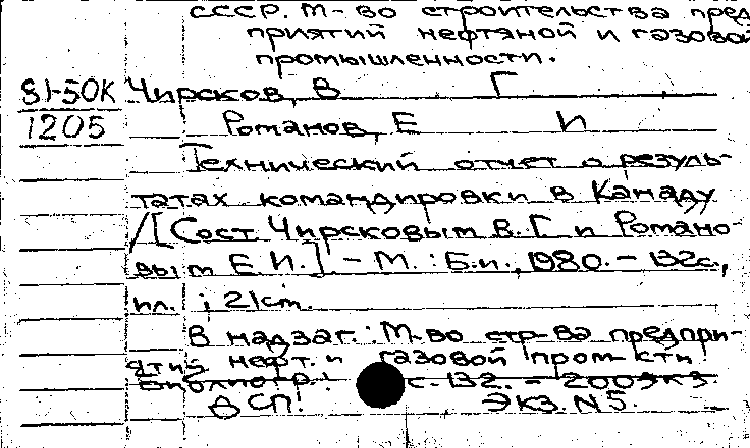 СССР. М-во строительства пред
приятий нефтяной и газовой
промышленности.
81-50К Чирсков, В Г
1205 Романов, Е И
Технический отчет о резуль-
татах командировки в Канаду
/[Сост Чирсковым В. Г и Романо-
вым Е. И.] - М. : Б.и., 1980. - 132с.,
ил. ; 21см.
В надзаг. : М-во стр-ва предпри-
ятий нефт. и газовой пром-сти!
Библиогр.: с. 132. - 200экз.
В СП! ЭКЗ. N5.